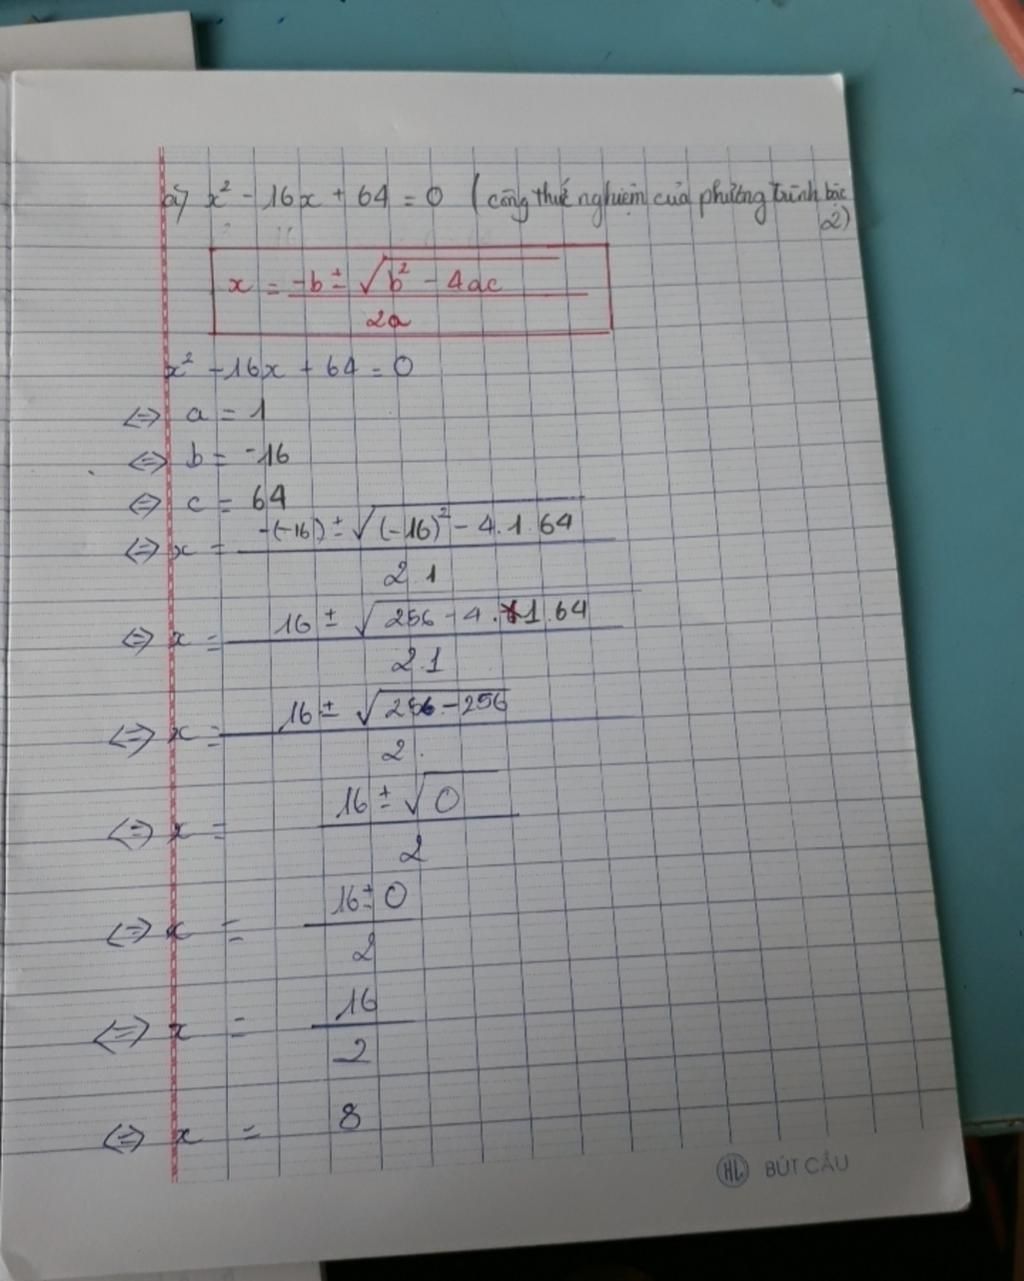 a) x² - 16x + 64 = 0 (công thứ nghiệm của phương trình bậc
2)
x = -b ± √(b² - 4ac)
2a
x² - 16x + 64 = 0
⇔ a = 1
⇔ b = -16
⇔ c = 64
⇔ x = -(-16) ± √((-16)² - 4.1.64)
2.1
⇔ x = 16 ± √(256 - 4.1.64)
2.1
⇔ x = 16 ± √(256 - 256)
2.
⇔ x = 16 ± √0
2
⇔ x = 16 ± 0
2
⇔ x = 16
2
⇔ x = 8
HL BÚT CẦU